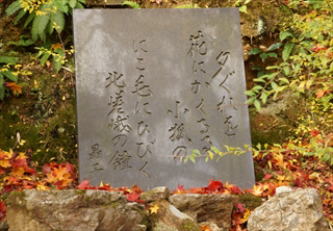 夕ぐれを
花にかくるゝ
小狐の
にこ毛にひびく
北嵯峨の鐘
晶子